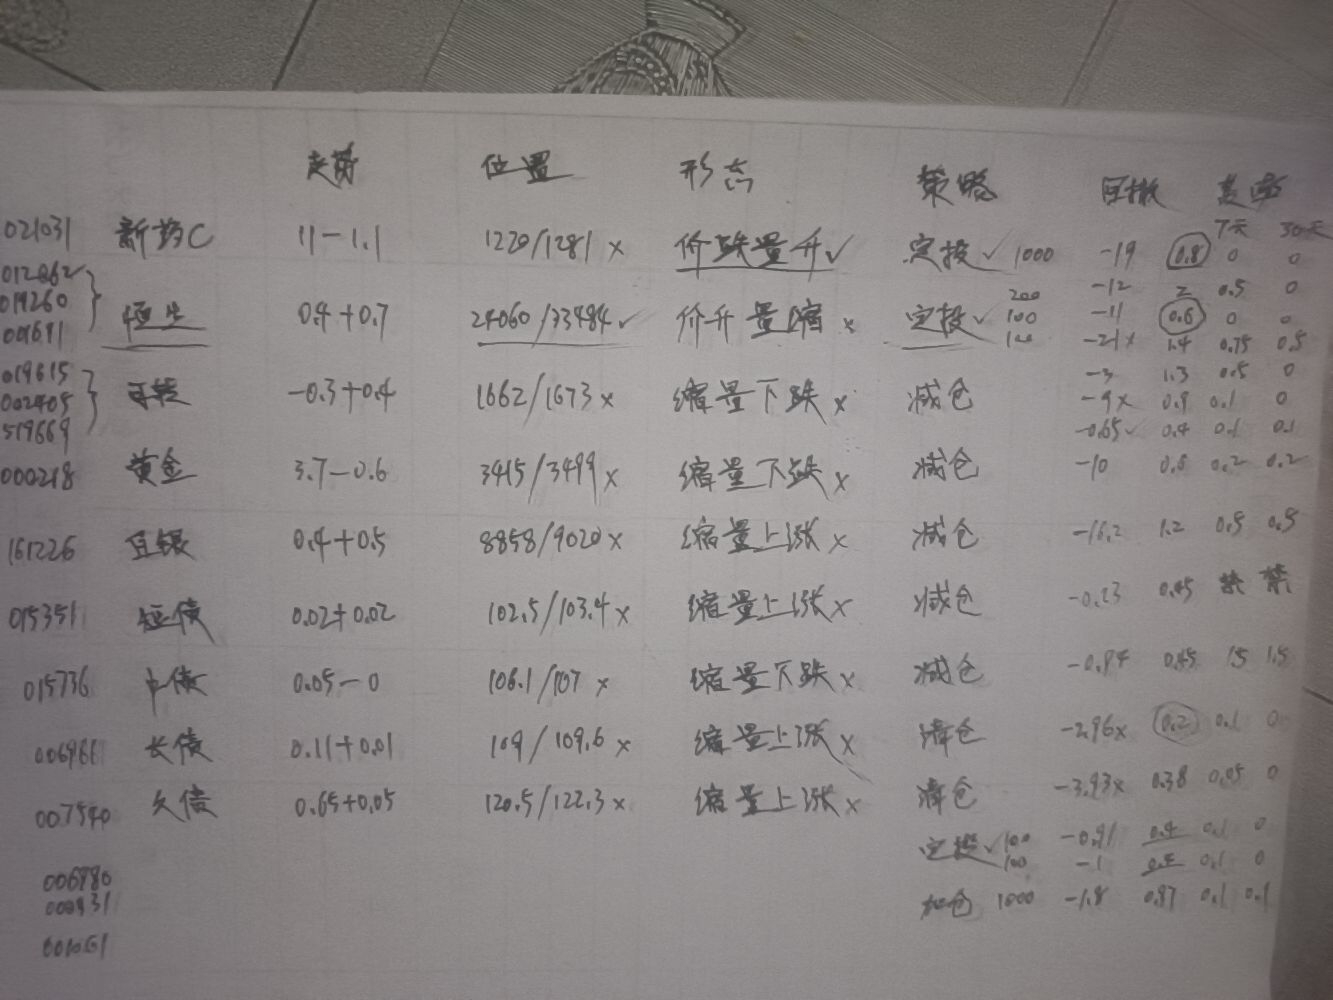 走势 位置 形态 策略 回撤 费率
7天 30天
021031 新药C 11-1.1 1220/1281 x 价跌量升✓ 定投✓ 1000 -19 0.8 0 0
012862 200 -12 2 0.5 0
019260 恒生 0.4+0.7 24060/33484✓ 价升量缩 x 定投✓ 100 -11 0.6 0 0
100 -21x 1.4 0.75 0.5
019615 -3 1.3 0.5 0
002405 可转 -0.3+0.4 1662/1673 x 缩量下跌 x 减仓 -9x 0.9 0.1 0
519669 -0.65✓ 0.4 0.1 0.1
000218 黄金 3.7-0.6 3415/3499 x 缩量下跌 x 减仓 -10 0.2 0.2
161226 白银 0.4+0.5 8858/9020 x 缩量上涨 x 减仓 -16.2 1.2 0.5 0.5
015351 短债 0.02+0.02 102.5/103.4 x 缩量上涨 x 减仓 -0.23 0.45 禁 禁
015736 中债 0.05-0 106.1/107 x 缩量下跌 x 减仓 -0.84 0.45 1.5 1.5
长债 0.11+0.01 109/109.6 x 缩量上涨 x 清仓 -2.96x 0.2 0.1 0
007540 久债 0.65+0.05 120.5/122.3 x 缩量上涨 x 清仓 -3.93x 0.38 0.05 0
定投✓ 100 -0.91 0.4 0.1 0
100 -1 0.4 0.1 0
加仓 1000 -1.8 0.87 0.1 0.1